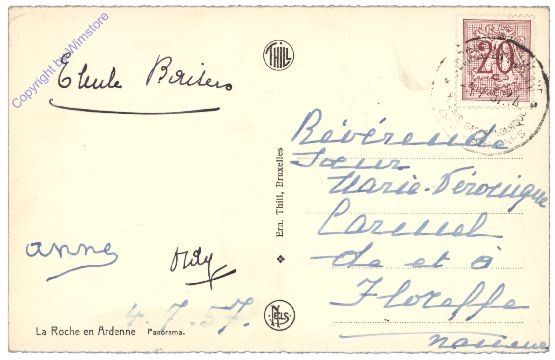 Copyright by Winstore
THILL
20
Révérende
Sœur
Marie-Véronique
Carmel
de et à
Floreffe
Namur
Ern. Thill, Bruxelles
anne
4.7.57.
NELS
La Roche en Ardenne Panorama.